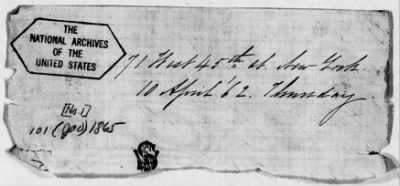 THE
NATIONAL ARCHIVES
OF THE
UNITED STATES
71 West 45th st. New York
10 April '62. Thursday
[No. 1]
101 (900) 1865